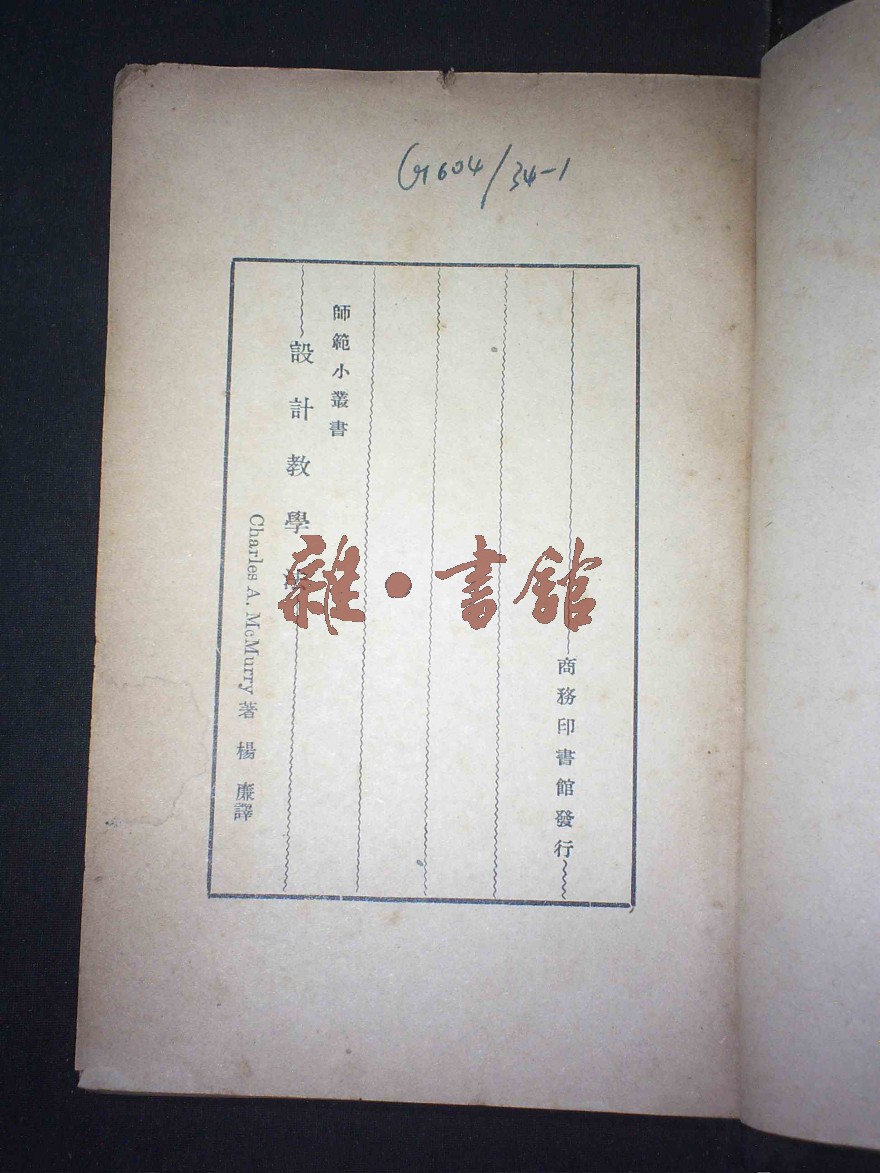 G604/34-1
師範小叢書
設計教學法
Charles A. McMurry著 楊廉譯
商務印書館發行
雜·書館